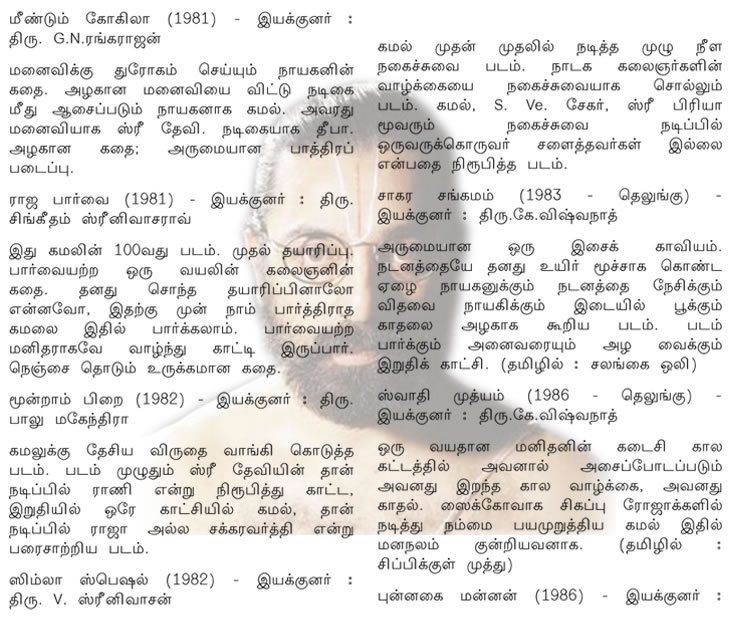 மீண்டும் கோகிலா (1981) - இயக்குனர் :
திரு. G.N.ரங்கராஜன்
மனைவிக்கு துரோகம் செய்யும் நாயகனின்
கதை. அழகான மனைவியை விட்டு நடிகை
மீது ஆசைப்படும் நாயகனாக கமல். அவரது
மனைவியாக ஸ்ரீ தேவி. நடிகையாக தீபா.
அழகான கதை; அருமையான பாத்திரப்
படைப்பு.
ராஜ பார்வை (1981) - இயக்குனர் : திரு.
சிங்கீதம் ஸ்ரீனிவாசராவ்
இது கமலின் 100வது படம். முதல் தயாரிப்பு.
பார்வையற்ற ஒரு வயலின் கலைஞனின்
கதை. தனது சொந்த தயாரிப்பினாலோ
என்னவோ, இதற்கு முன் நாம் பார்த்திராத
கமலை இதில் பார்க்கலாம். பார்வையற்ற
மனிதராகவே வாழ்ந்து காட்டி இருப்பார்.
நெஞ்சை தொடும் உருக்கமான கதை.
மூன்றாம் பிறை (1982) - இயக்குனர் : திரு.
பாலு மகேந்திரா
கமலுக்கு தேசிய விருதை வாங்கி கொடுத்த
படம். படம் முழுதும் ஸ்ரீ தேவியின் தான்
நடிப்பில் ராணி என்று நிரூபித்து காட்ட,
இறுதியில் ஒரே காட்சியில் கமல், தான்
நடிப்பில் ராஜா அல்ல சக்கரவர்த்தி என்று
பரைசாற்றிய படம்.
ஸிம்லா ஸ்பெஷல் (1982) - இயக்குனர் :
திரு. V. ஸ்ரீனிவாசன்
கமல் முதன் முதலில் நடித்த முழு நீள
நகைச்சுவை படம். நாடக கலைஞர்களின்
வாழ்க்கையை நகைச்சுவையாக சொல்லும்
படம். கமல், S. Ve. சேகர், ஸ்ரீ பிரியா
மூவரும் நகைச்சுவை நடிப்பில்
ஒருவருக்கொருவர் சளைத்தவர்கள் இல்லை
என்பதை நிரூபித்த படம்.
சாகர சங்கமம் (1983 - தெலுங்கு) -
இயக்குனர் : திரு.கே.விஷ்வநாத்
அருமையான ஒரு இசைக் காவியம்.
நடனத்தையே தனது உயிர் மூச்சாக கொண்ட
ஏழை நாயகனுக்கும் நடனத்தை நேசிக்கும்
விதவை நாயகிக்கும் இடையில் பூக்கும்
காதலை அழகாக கூறிய படம். படம்
பார்க்கும் அனைவரையும் அழ வைக்கும்
இறுதிக் காட்சி. (தமிழில் : சலங்கை ஒலி)
ஸ்வாதி முத்யம் (1986 - தெலுங்கு) -
இயக்குனர் : திரு.கே.விஷ்வநாத்
ஒரு வயதான மனிதனின் கடைசி கால
கட்டத்தில் அவனால் அசைப்போடப்படும்
அவனது இறந்த கால வாழ்க்கை, அவனது
காதல். ஸைக்கோவாக சிகப்பு ரோஜாக்களில்
நடித்து நம்மை பயமுறுத்திய கமல் இதில்
மனநலம் குன்றியவனாக. (தமிழில் :
சிப்பிக்குள் முத்து)
புன்னகை மன்னன் (1986) - இயக்குனர் :